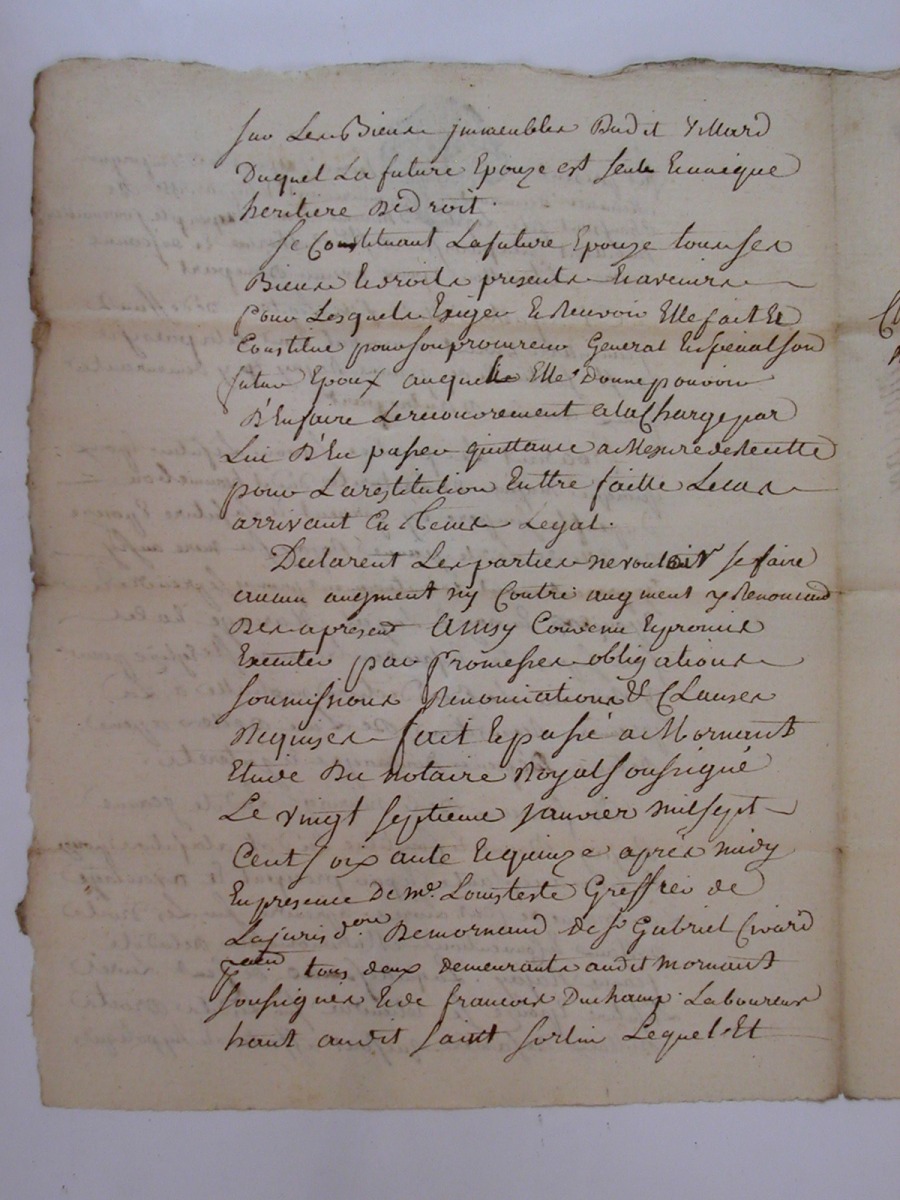 sur Les Biens immeubles Dudit Villard
Duquel La future Epouze est seule Eunique
heritiere De droit.
Se Constituant La future Epouze tous ses
Biens Edroits presents Eavenirs
pour Lesquels Exiger Erecevoir Elle fait Et
Constitue pour son procureur General Especial son
futur Epoux auquel Elle Donne pouvoir
D'En faire Le recouvrement a la Charge par
Lui D'En passer quittance a Mesure de Recette
pour La restitution En Etre faitte Le cas
arrivant En tems Legal.
Declarent Les parties ne vouloir se faire
aucun augment ny Contre augment y Renoncant
Des apresent Ainsy Convenu Epromis
Executer par promesses obligations
soumissions Renonciations & Clauses
Requises fait Epassé a Mornant
Etude Du notaire Royal Soussigné
Le vingt septieme janvier mil sept
Cent soixante Equinze après midy
En presence De me. Louis teste Greffier de
La juris d.on De mornand de sr. Gabriel Civard
tous deux demeurants audit Mornant
soussignés Ede francois Duchamp Laboureur
hant audit saint sorlin Lequel Et